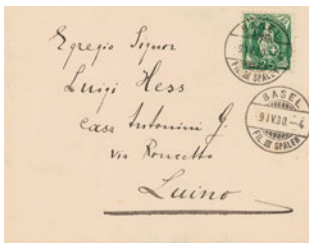 Egregio Signor
Luigi Hess
Casa Antonini G.
via Roncetto
Luino
BASEL
9 IV.00.–4
FIL. III SPALEN
FIL. III SPALEN